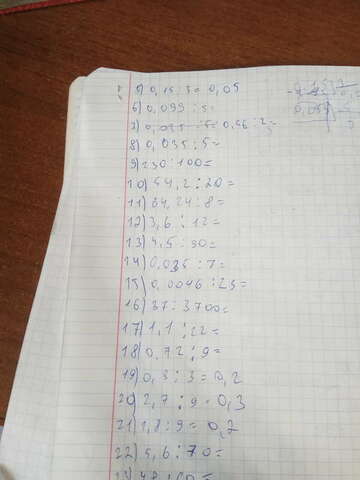 5) 0,15 : 3 = 0,05
6) 0,099 : 5 =
7) 0,035 : 5 = 0,56 : 2 =
8) 0,035 : 5 =
9) 230 : 100 =
10) 54,2 : 20 =
11) 64,24 : 8 =
12) 3,6 : 12 =
13) 4,5 : 90 =
14) 0,035 : 7 =
15) 0,0046 : 23 =
16) 37 : 3700 =
17) 1,1 : 22 =
18) 0,72 : 9 =
19) 0,3 : 3 = 0,2
20) 2,7 : 9 = 0,3
21) 1,8 : 9 = 0,2
22) 5,6 : 70 =